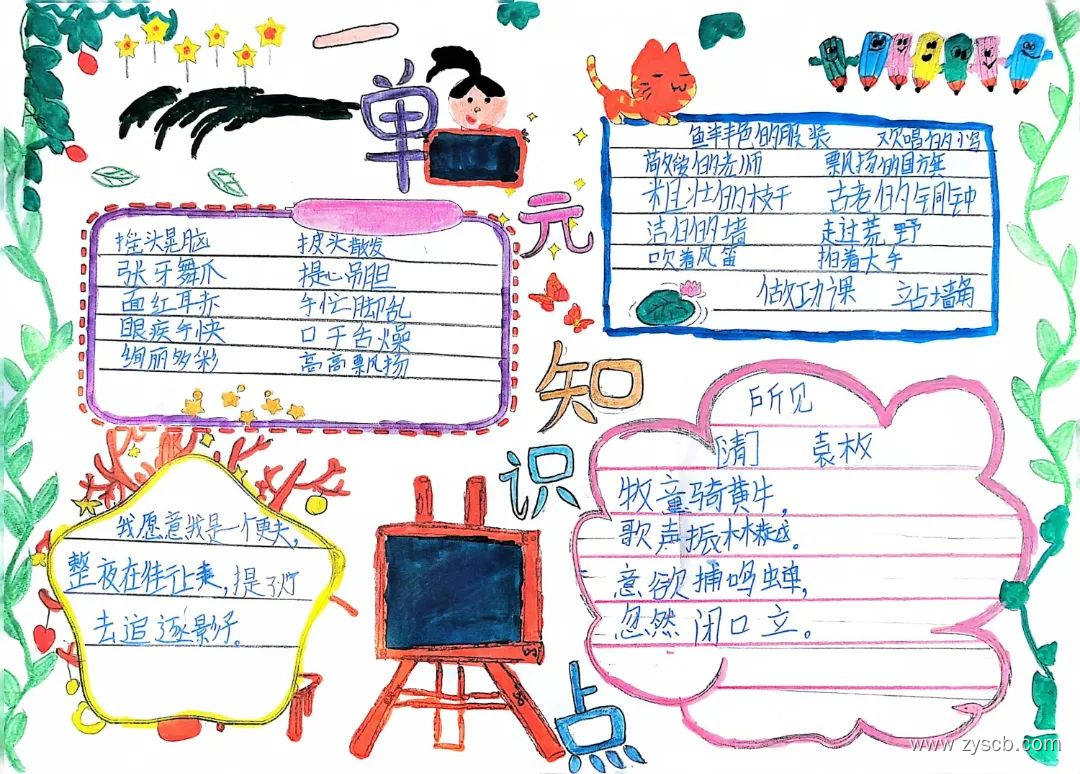 单元知识点
摇头晃脑 披头散发
张牙舞爪 提心吊胆
面红耳赤 手忙脚乱
眼疾手快 口干舌燥
绚丽多彩 高高飘扬
鲜艳的服装 欢唱的小鸟
敬爱的老师 飘扬的国旗
粗壮的枝干 古老的铜钟
洁白的墙 走过荒野
吹着风笛 拍着大手
做功课 站墙角
我愿意我是一个更夫,
整夜在街上走,提了灯
去追逐影子。
所见
[清] 袁枚
牧童骑黄牛,
歌声振林樾。
意欲捕鸣蝉,
忽然闭口立。
www.zyscb.com